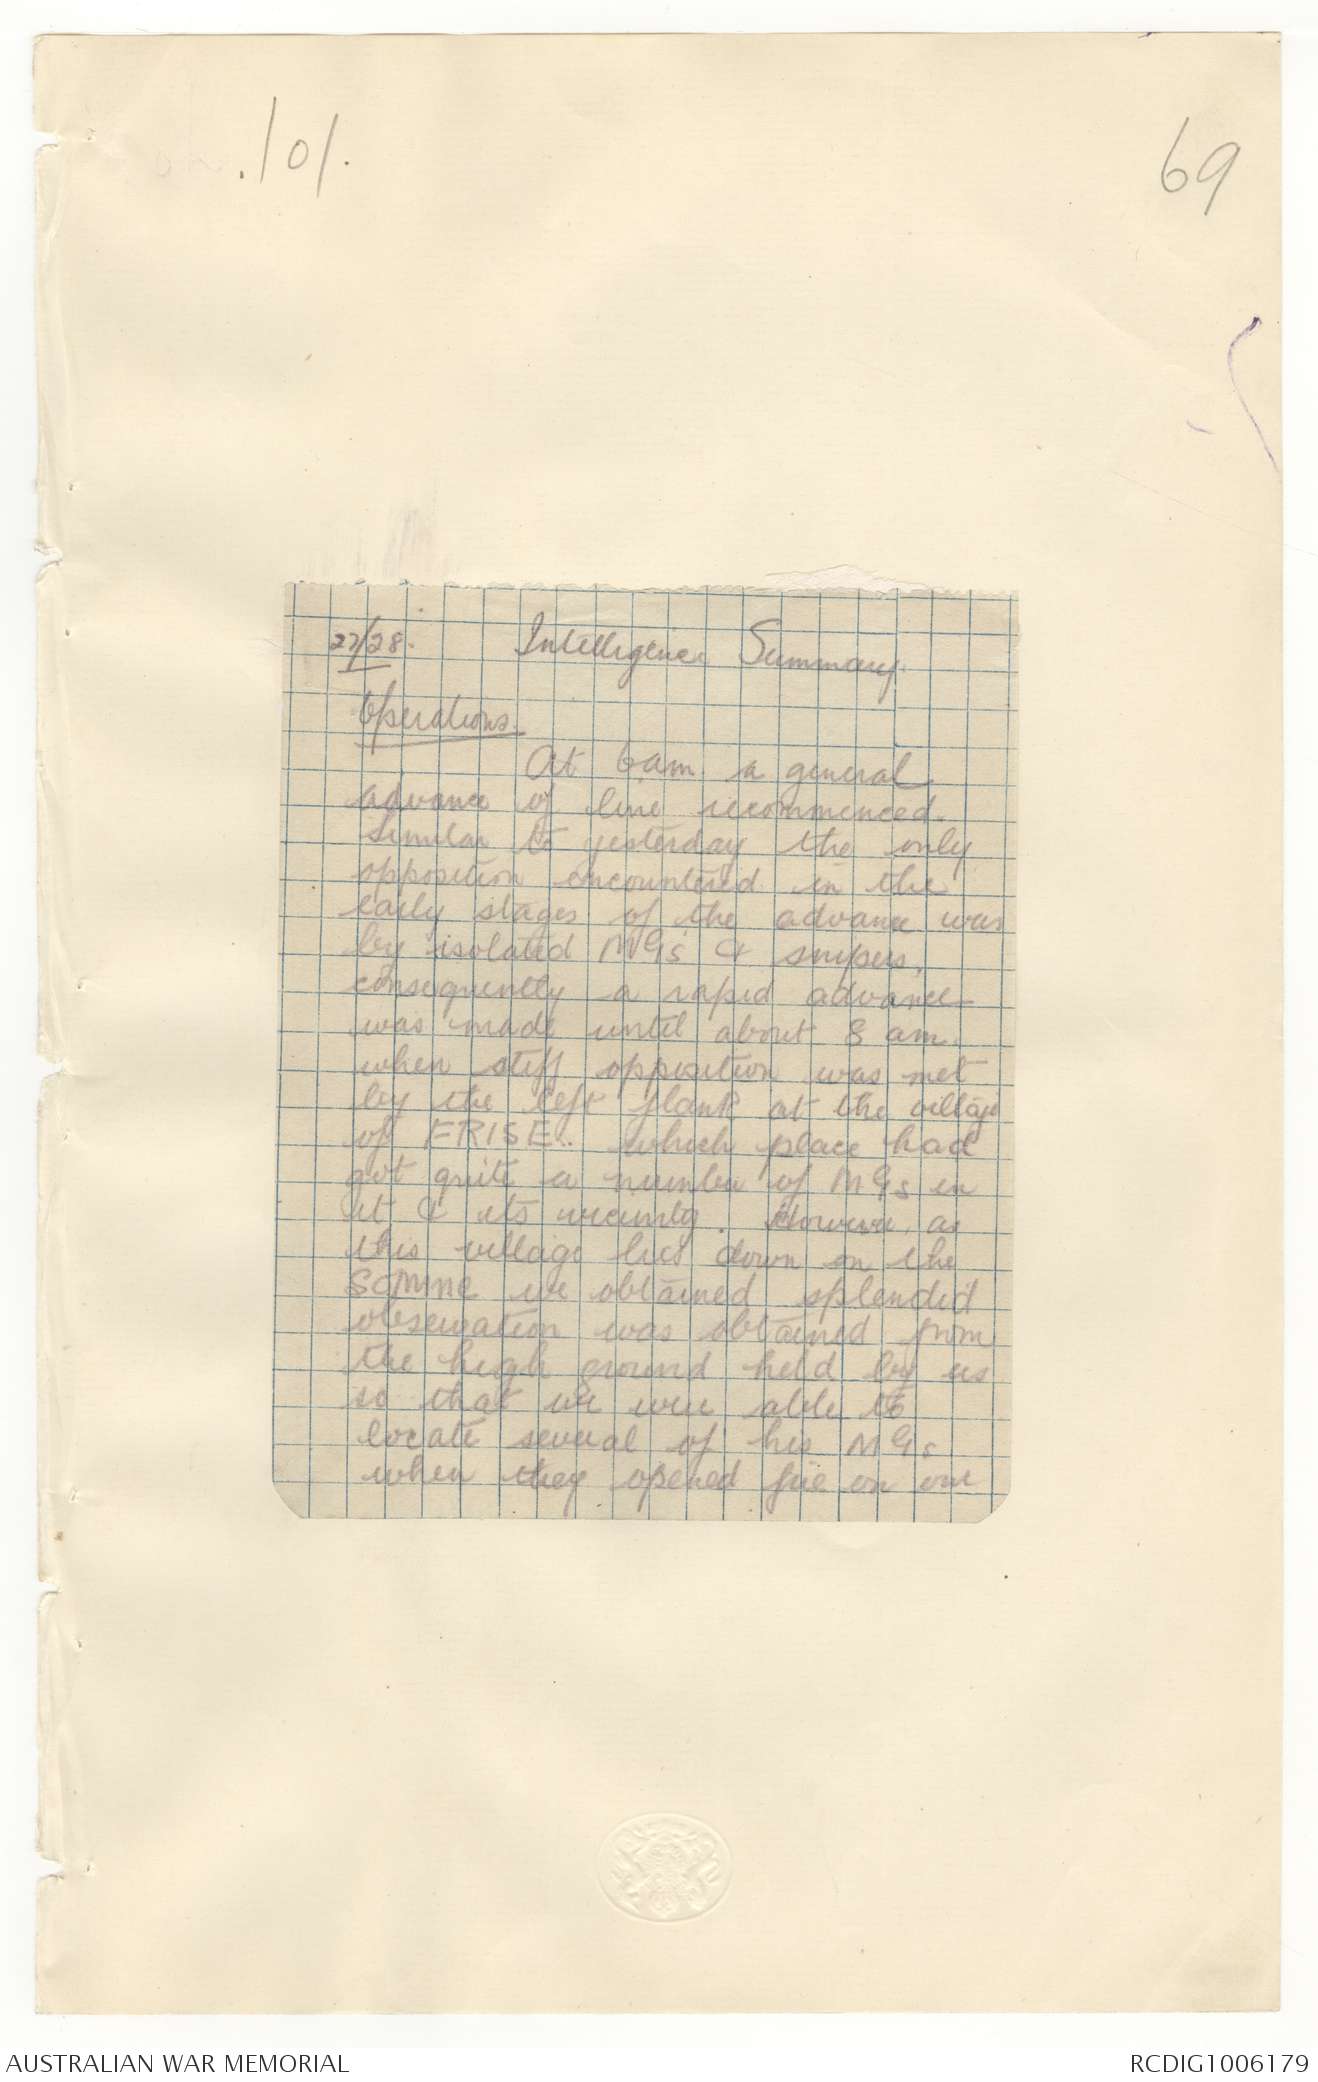 .101.
69
27/28. Intelligence Summary.
Operations.
At 6 am. a general
advance of line recommenced.
Similar to yesterday the only
opposition encountered in the
early stages of the advance was
by isolated MGs & snipers,
consequently a rapid advance
was made until about 8 am.
when stiff opposition was met
by the left flank at the village
of FRISE. which place had
got quite a number of MGs in
it & its vicinity. However, as
this village lies down on the
SOMME we obtained splendid
observation was obtained from
the high ground held by us
so that we were able to
locate several of his MGs
when they opened fire on our
AUSTRALIAN WAR MEMORIAL
RCDIG1006179